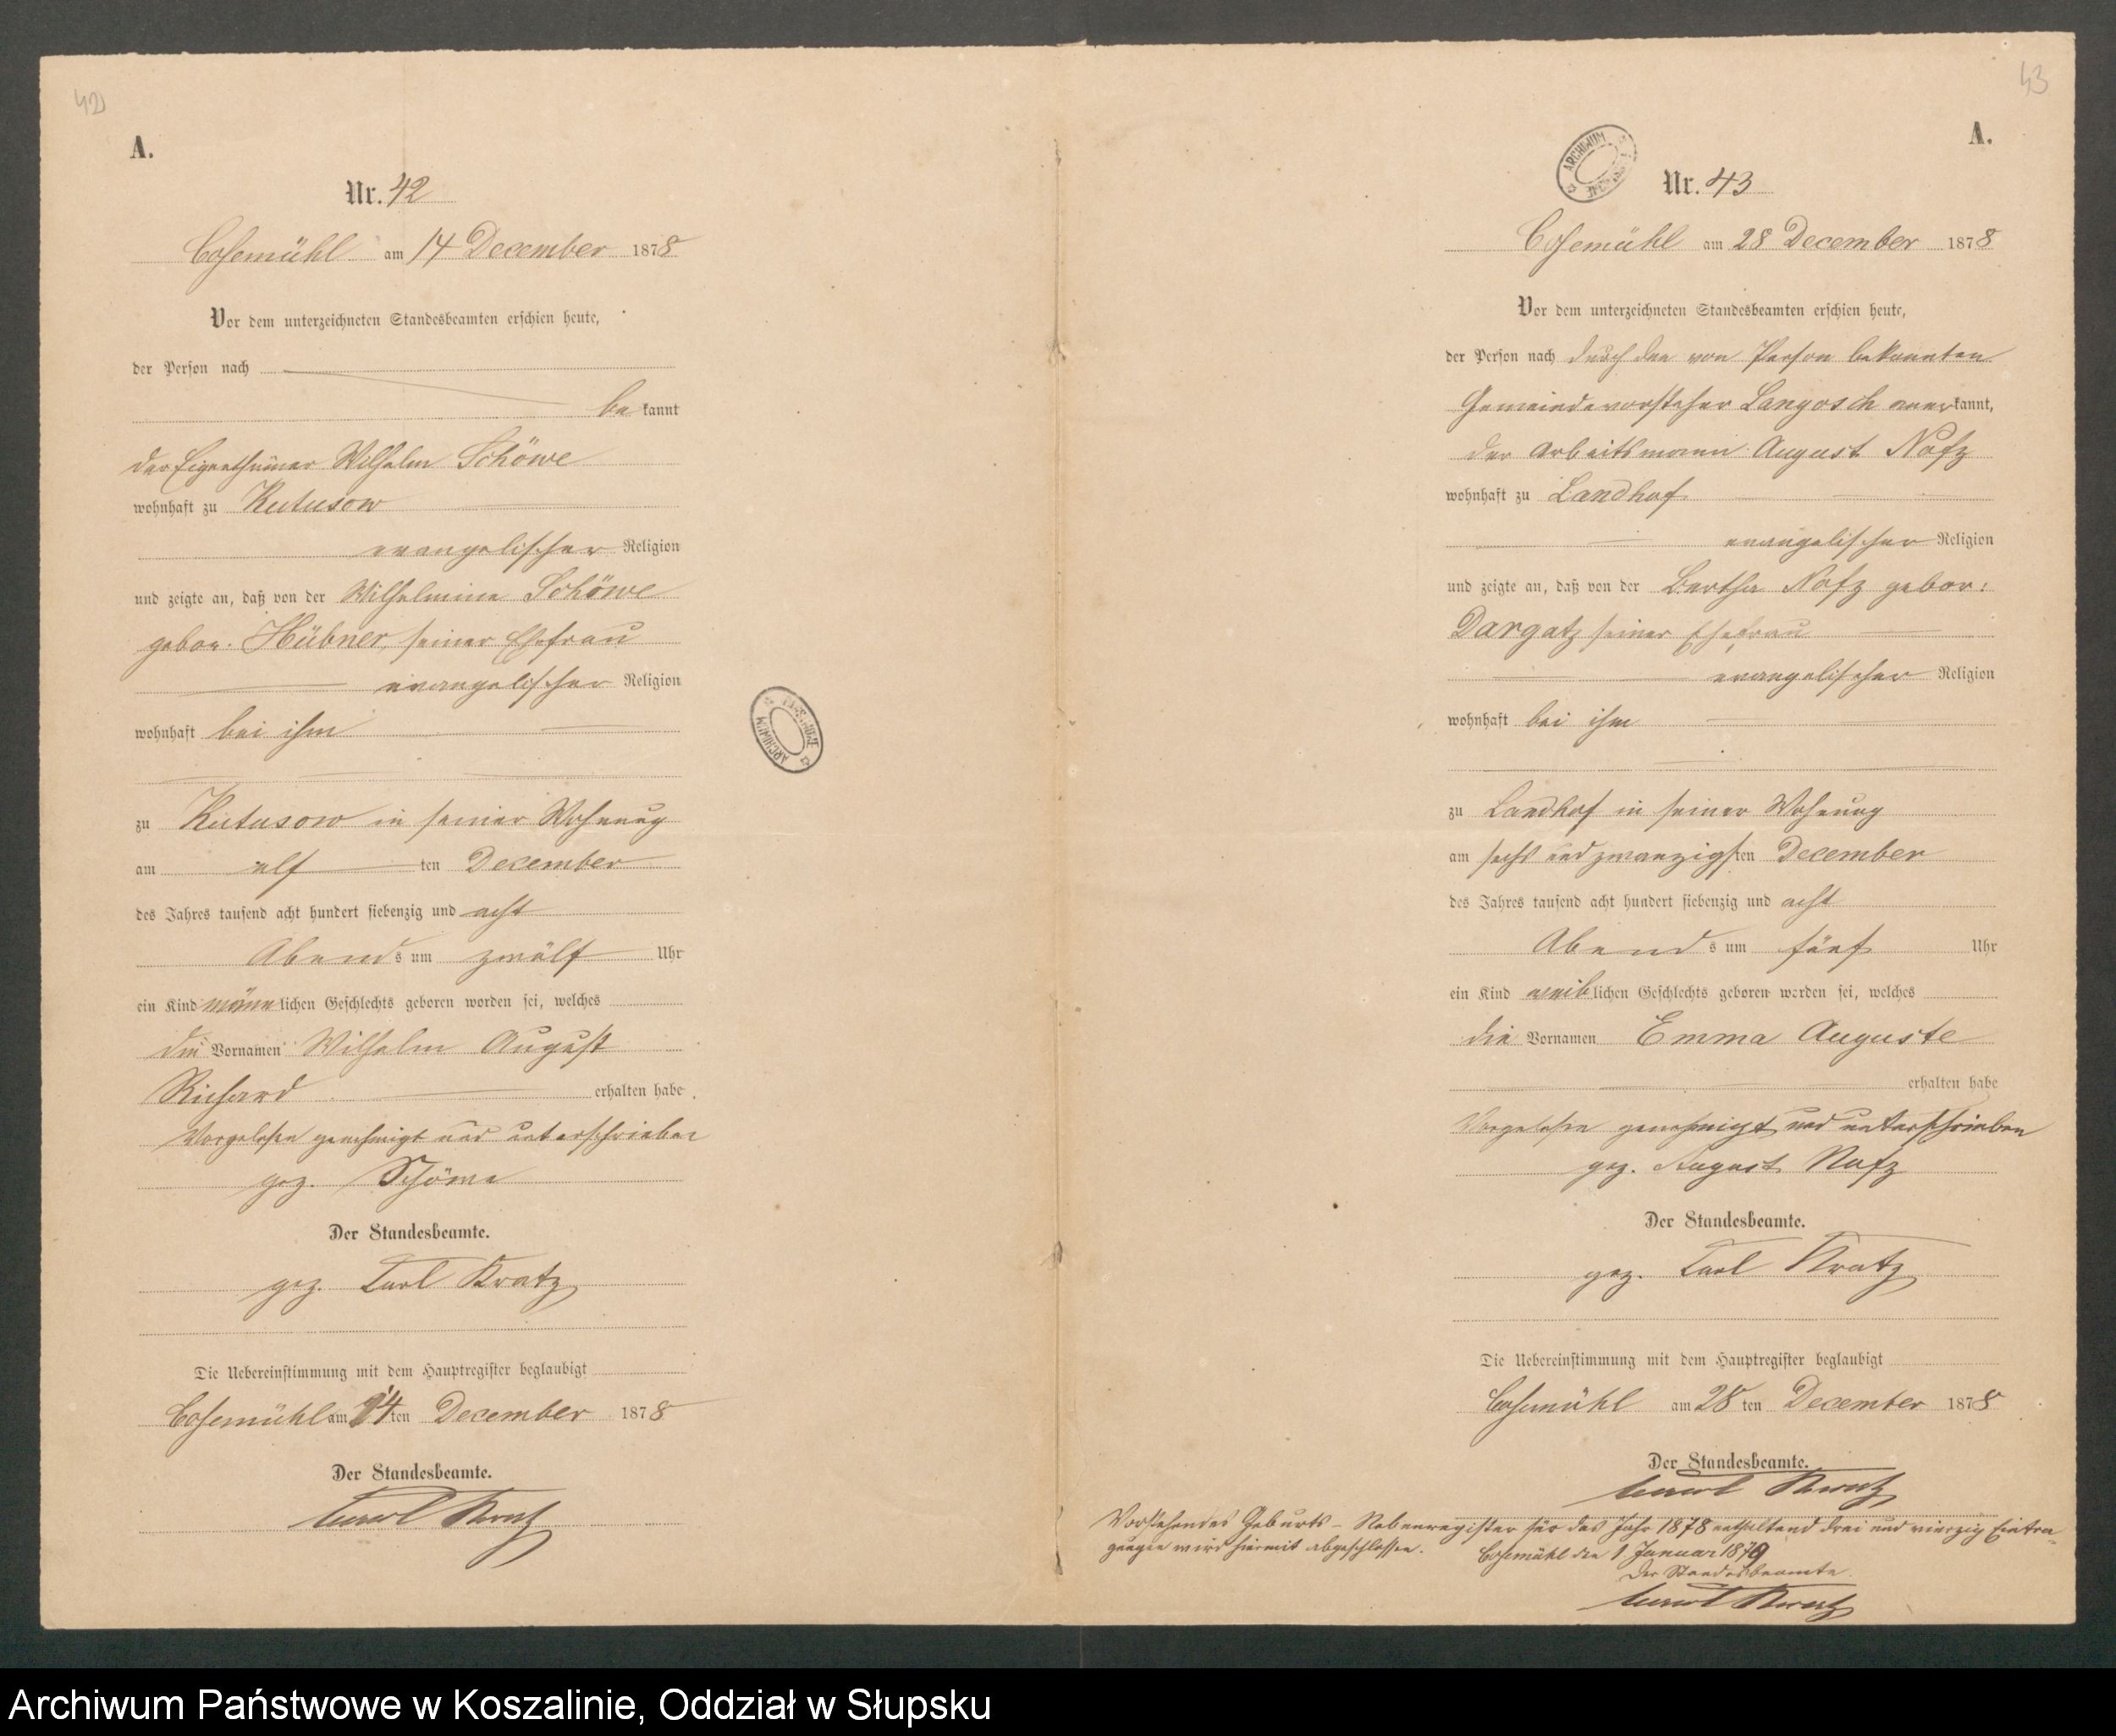 42
A.
Nr. 42
Cosemühl am 14 December 1878
Vor dem unterzeichneten Standesbeamten erschien heute,
der Person nach
be kannt
der Eigenthümer Wilhelm Schöwe
wohnhaft zu Kutusow
evangelischer Religion
und zeigte an, daß von der Wilhelmine Schöwe
gebor. Hübner, seiner Ehefrau
evangelischer Religion
wohnhaft bei ihm
zu Kutusow in seiner Wohnung
am elf ten December
des Jahres tausend acht hundert siebenzig und acht
Abends um zwölf Uhr
ein Kind männlichen Geschlechts geboren worden sei, welches
die Vornamen Wilhelm August
Richard erhalten habe.
Vorgelesen genehmigt und unterschrieben
gez. Schöwe
Der Standesbeamte.
gez. Carl Kratz
Die Uebereinstimmung mit dem Hauptregister beglaubigt
Cosemühl am 14ten December 1878
Der Standesbeamte.
Carl Kratz
ARCHIWUM
43
A.
ARCHIWUM
Nr. 43
Cosemühl am 28 December 1878
Vor dem unterzeichneten Standesbeamten erschien heute,
der Person nach durch den von Person bekannten
Gemeindevorsteher Langosch anerkannt,
der Arbeitsmann August Nofz
wohnhaft zu Landhof
evangelischer Religion
und zeigte an, daß von der Bertha Nofz gebor:
Dargatz seiner Ehefrau
evangelischer Religion
wohnhaft bei ihm
zu Landhof in seiner Wohnung
am sechs und zwanzigsten December
des Jahres tausend acht hundert siebenzig und acht
Abends um fünf Uhr
ein Kind weiblichen Geschlechts geboren worden sei, welches
die Vornamen Emma Auguste
erhalten habe
Vorgelesen genehmigt und unterschrieben
gez. August Nofz
Der Standesbeamte.
gez. Carl Kratz
Die Uebereinstimmung mit dem Hauptregister beglaubigt
Cosemühl am 28 ten December 1878
Der Standesbeamte.
Carl Kratz
Vorstehendes Geburts-Nebenregister für das Jahr 1878 enthaltend drei und vierzig Eintra-
gungen wird hiermit abgeschlossen.
Cosemühl den 1 Januar 1879
Der Standesbeamte.
Carl Kratz
Archiwum Państwowe w Koszalinie, Oddział w Słupsku